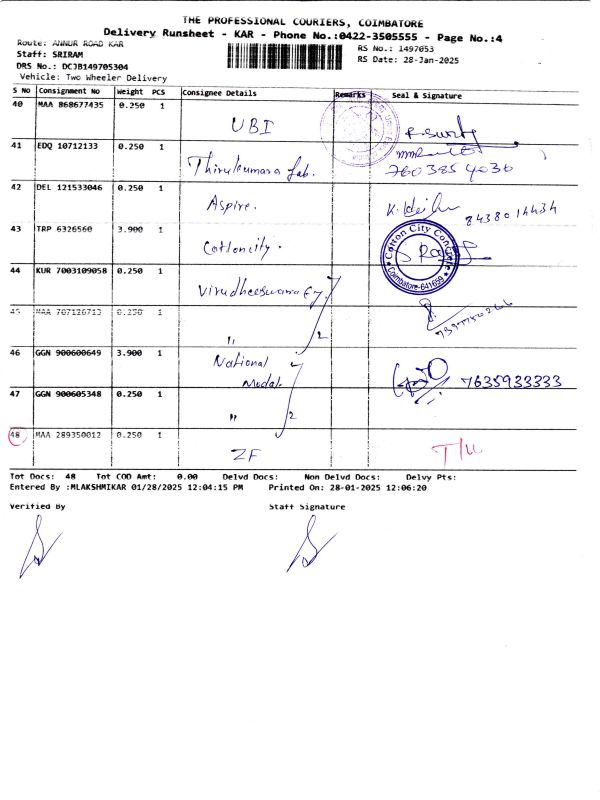 THE PROFESSIONAL COURIERS, COIMBATORE
Delivery Runsheet - KAR - Phone No.:0422-3505555 - Page No.:4
Route: ANNUR ROAD KAR
RS No.: 1497053
Staff: SRIRAM
RS Date: 28-Jan-2025
DRS No.: DCJB149705304
Vehicle: Two Wheeler Delivery
S No Consignment No Weight PCS Consignee Details Remarks Seal & Signature
40 MAA 868677435 0.250 1 UBI
41 EDQ 10712133 0.250 1 Thirukumara Lab. 760385 4036
42 DEL 121533046 0.250 1 Aspire. 8438014434
43 TRP 6326560 3.900 1 Cottoncity. Cotton City Coimbatore-641659
44 KUR 7003109058 0.250 1 Virudheeswara
45 MAA 707126713 0.250 1 " 2
46 GGN 900600649 3.900 1 National Modal. 7635933333
47 GGN 900605348 0.250 1 " 2
48 MAA 289350012 0.250 1 ZF
Tot Docs: 48 Tot COD Amt: 0.00 Delvd Docs: Non Delvd Docs: Delvy Pts:
Entered By :MLAKSHMIKAR 01/28/2025 12:04:15 PM Printed On: 28-01-2025 12:06:20
Verified By Staff Signature